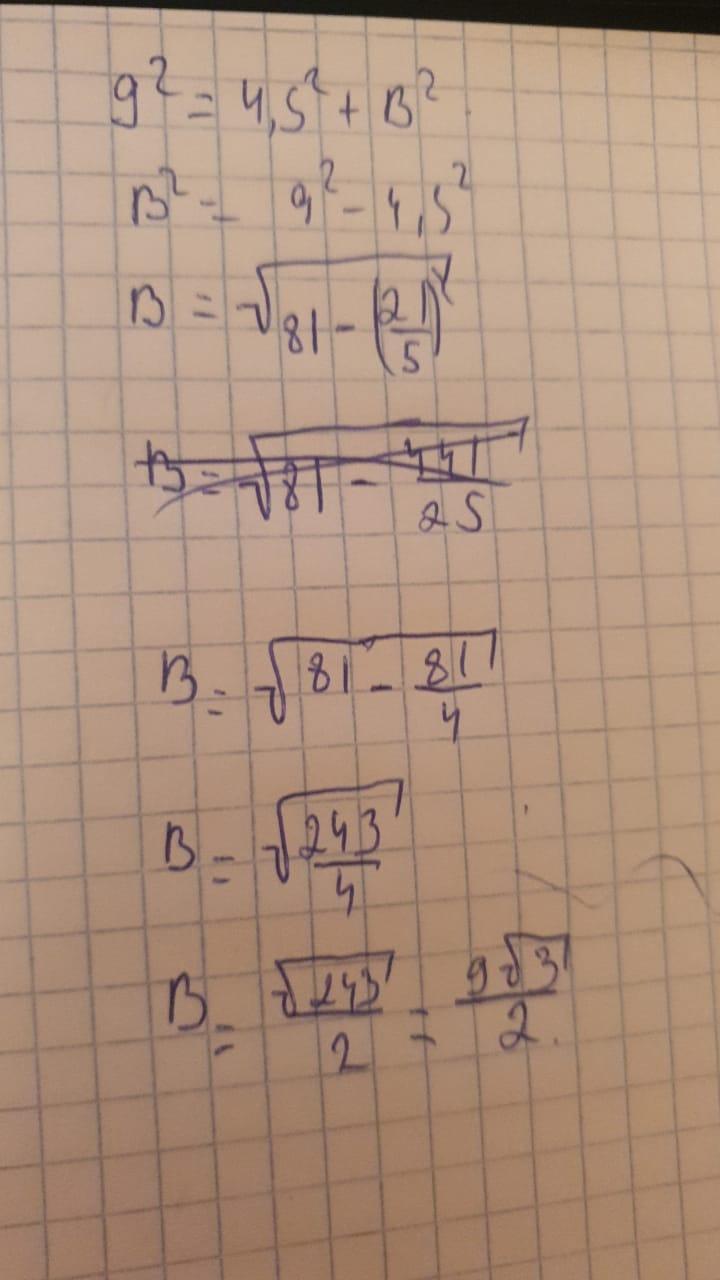 9² = 4,5² + B²
B² = 9² - 4,5²
B = √(81 - (21/5)²)
B = √(81 - 441/25)
B = √(81 - 81/4)
B = √(243/4)
B = √243/2 = 9√3/2.